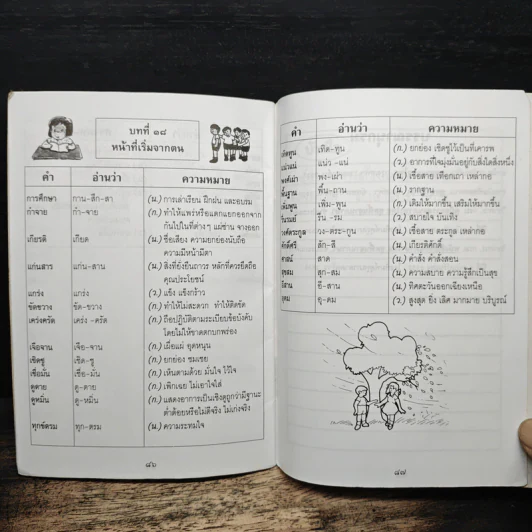 บทที่ ๑๘
หน้าที่เริ่มจากตน
คำ อ่านว่า ความหมาย
การศึกษา กาน-สึก-สา (น.) การเล่าเรียน ฝึกฝน และอบรม
กำจาย กำ-จาย (ก.) ทำให้แพร่หรือแตกแยกออกจาก
กันไปในที่ต่างๆ แผ่ซ่าน จางออก
เกียรติ เกียด (น.) ชื่อเสียง ความยกย่องนับถือ
ความมีหน้ามีตา
แก่นสาร แก่น-สาน (น.) สิ่งที่ยั่งยืนถาวร หลักที่ควรยึดถือ
คุณประโยชน์
แกร่ง แกร่ง (ว.) แข็ง แข็งกร้าว
ขัดขวาง ขัด-ขวาง (ก.) ทำให้ไม่สะดวก ทำให้ติดขัด
เคร่งครัด เคร่ง -ครัด (ก.) ถือปฏิบัติตามระเบียบข้อบังคับ
โดยไม่ให้ขาดตกบกพร่อง
เจือจาน เจือ-จาน (ก.) เผื่อแผ่ อุดหนุน
เชิดชู เชิด-ชู (ก.) ยกย่อง ชมเชย
เชื่อมั่น เชื่อ-มั่น (ก.) เห็นตามด้วย มั่นใจ ไว้ใจ
ดูดาย ดู-ดาย (ก.) เพิกเฉย ไม่เอาใจใส่
ดูหมิ่น ดู-หมิ่น (ก.) แสดงอาการเป็นเชิงดูถูกว่ามีฐานะ
ต่ำต้อยหรือไม่ดีจริง ไม่เก่งจริง
ทุกข์ตรม ทุก-ตรม (น.) ความระทมใจ
๘๖
คำ อ่านว่า ความหมาย
เทิดทูน เทิด-ทูน (ก.) ยกย่อง เชิดชูไว้เป็นที่เคารพ
แน่วแน่ แน่ว -แน่ (ว.) อาการที่ใจมุ่งมั่นอยู่กับสิ่งใดสิ่งหนึ่ง
พงศ์เผ่า พง-เผ่า (น.) เชื้อสาย เทือกเถา เหล่ากอ
พื้นฐาน พื้น-ถาน (น.) รากฐาน
เพิ่มพูน เพิ่ม-พูน (ก.) เติมให้มากขึ้น เสริมให้มากขึ้น
รื่นรมย์ รื่น -รม (ว.) สบายใจ บันเทิง
วงศ์ตระกูล วง-ตระ-กูน (น.) เชื้อสาย ตระกูล เหล่ากอ
ศักดิ์ศรี สัก-สี (น.) เกียรติศักดิ์
ศาสน์ สาด (น.) คำสั่ง คำสั่งสอน
สุขสม สุก-สม (น.) ความสบาย ความรู้สึกเป็นสุข
อีสาน อี-สาน (น.) ทิศตะวันออกเฉียงเหนือ
อุดม อุ-ดม (ว.) สูงสุด ยิ่ง เลิศ มากมาย บริบูรณ์
๘๗